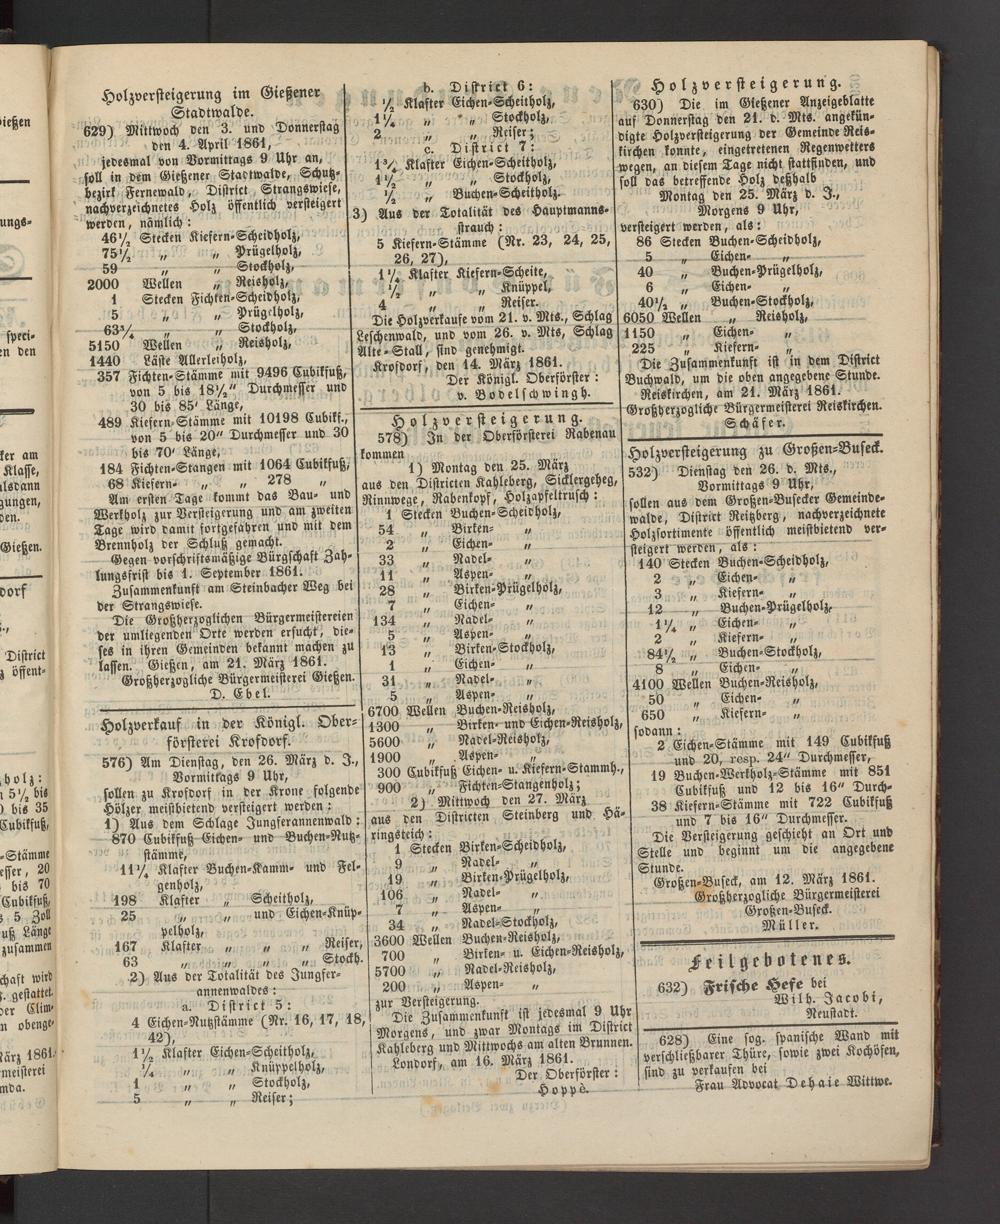 Holzversteigerung im Gießener
Stadtwalde.
629) Mittwoch den 3. und Donnerstag
den 4. April 1861,
jedesmal von Vormittags 9 Uhr an,
soll in dem Gießener Stadtwalde, Schutz-
bezirk Fernewald, District Strangswiese,
nachverzeichnetes Holz öffentlich versteigert
werden, nämlich:
46½ Stecken Kiefern-Scheidholz,
75½ „ „ Prügelholz,
59 „ „ Stockholz,
2000 Wellen „ Reisholz,
1 Stecken Fichten-Scheidholz,
5 „ „ Prügelholz,
63¾ „ „ Stockholz,
5150 Wellen „ Reisholz,
1440 Läste Allerleiholz,
357 Fichten-Stämme mit 9496 Cubikfuß,
von 5 bis 18½" Durchmesser und
30 bis 85' Länge,
489 Kiefern-Stämme mit 10198 Cubikf.,
von 5 bis 20" Durchmesser und 30
bis 70' Länge,
184 Fichten-Stangen mit 1064 Cubikfuß,
68 Kiefern- „ „ 278 „
Am ersten Tage kommt das Bau- und
Werkholz zur Versteigerung und am zweiten
Tage wird damit fortgefahren und mit dem
Brennholz der Schluß gemacht.
Gegen vorschriftsmäßige Bürgschaft Zah-
lungsfrist bis 1. September 1861.
Zusammenkunft am Steinbacher Weg bei
der Strangswiese.
Die Großherzoglichen Bürgermeistereien
der umliegenden Orte werden ersucht, die-
ses in ihren Gemeinden bekannt machen zu
lassen. Gießen, am 21. März 1861.
Großherzogliche Bürgermeisterei Gießen.
D. Ebel.
Holzverkauf in der Königl. Ober-
försterei Krofdorf.
576) Am Dienstag, den 26. März d. J.,
Vormittags 9 Uhr,
sollen zu Krofdorf in der Krone folgende
Hölzer meistbietend versteigert werden:
1) Aus dem Schlage Jungferannenwald:
870 Cubikfuß Eichen- und Buchen-Nutz-
stämme,
11¼ Klafter Buchen-Kamm- und Fel-
genholz,
198 Klafter „ Scheitholz,
25 „ „ und Eichen-Knüp-
pelholz,
167 Klafter „ „ „ Reiser,
63 „ „ „ „ Stockh.
2) Aus der Totalität des Jungfer-
annenwaldes:
a. District 5:
4 Eichen-Nutzstämme (Nr. 16, 17, 18,
42),
1½ Klafter Eichen-Scheitholz,
¼ „ „ Knüppelholz,
1 „ „ Stockholz,
5 „ „ Reiser;
b. District 6:
½ Klafter Eichen-Scheitholz,
1¼ „ „ Stockholz,
2 „ „ Reiser;
c. District 7:
1¾ Klafter Eichen-Scheitholz,
1½ „ „ Stockholz,
½ „ Buchen-Scheitholz.
3) Aus der Totalität des Hauptmanns-
strauch:
5 Kiefern-Stämme (Nr. 23, 24, 25,
26, 27),
1½ Klafter Kiefern-Scheite,
½ „ „ Knüppel,
4 „ „ Reiser.
Die Holzverkaufe vom 21. v. Mts., Schlag
Leschenwald, und vom 26. v. Mts, Schlag
Alte-Stall, sind genehmigt.
Krofdorf, den 14. März 1861.
Der Königl. Oberförster:
v. Bodelschwingh.
Holzversteigerung.
578) In der Oberförsterei Rabenau
kommen
1) Montag den 25. März
aus den Districten Kahleberg, Sicklergeheg,
Rinnwege, Rabenkopf, Holzapfeltrusch:
1 Stecken Buchen-Scheidholz,
54 „ Birken- „
2 „ Eichen- „
33 „ Nadel- „
11 „ Aspen- „
28 „ Birken-Prügelholz,
7 „ Eichen- „
134 „ Nadel- „
5 „ Aspen- „
13 „ Birken-Stockholz,
1 „ Eichen- „
31 „ Nadel- „
5 „ Aspen- „
6700 Wellen Buchen-Reisholz,
1300 „ Birken- und Eichen-Reisholz,
5600 „ Nadel-Reisholz,
1900 „ Aspen- „
300 Cubikfuß Eichen- u. Kiefern-Stammh.,
900 „ Fichten-Stangenholz;
2) Mittwoch den 27. März
aus den Districten Steinberg und Hä-
ringsteich:
1 Stecken Birken-Scheidholz,
9 „ Nadel- „
19 „ Birken-Prügelholz,
106 „ Nadel- „
7 „ Aspen- „
34 „ Nadel-Stockholz,
3600 Wellen Buchen-Reisholz,
700 „ Birken- u. Eichen-Reisholz,
5700 „ Nadel-Reisholz,
200 „ Aspen- „
zur Versteigerung.
Die Zusammenkunft ist jedesmal 9 Uhr
Morgens, und zwar Montags im District
Kahleberg und Mittwochs am alten Brunnen.
Londorf, am 16. März 1861.
Der Oberförster:
Hoppé.
Holzversteigerung.
630) Die im Gießener Anzeigeblatte
auf Donnerstag den 21. d. Mts. angekün-
digte Holzversteigerung der Gemeinde Reis-
kirchen konnte, eingetretenen Regenwetters
wegen, an diesem Tage nicht stattfinden, und
soll das betreffende Holz deßhalb
Montag den 25. März d. J.,
Morgens 9 Uhr,
versteigert werden, als:
86 Stecken Buchen-Scheidholz,
5 „ Eichen- „
40 „ Buchen-Prügelholz,
6 „ Eichen- „
40½ „ Buchen-Stockholz,
6050 Wellen „ Reisholz,
1150 „ Eichen- „
225 „ Kiefern- „
Die Zusammenkunft ist in dem District
Buchwald, um die oben angegebene Stunde.
Reiskirchen, am 21. März 1861.
Großherzogliche Bürgermeisterei Reiskirchen.
Schäfer.
Holzversteigerung zu Großen-Buseck.
532) Dienstag den 26. d. Mts.,
Vormittags 9 Uhr,
sollen aus dem Großen-Busecker Gemeinde-
walde, District Reitzberg, nachverzeichnete
Holzsortimente öffentlich meistbietend ver-
steigert werden, als:
140 Stecken Buchen-Scheidholz,
2 „ Eichen- „
3 „ Kiefern- „
12 „ Buchen-Prügelholz,
1¼ „ Eichen- „
2 „ Kiefern- „
84½ „ Buchen-Stockholz,
8 „ Eichen- „
4100 Wellen Buchen-Reisholz,
50 „ Eichen- „
650 „ Kiefern- „
sodann:
2 Eichen-Stämme mit 149 Cubikfuß
und 20, resp. 24" Durchmesser,
19 Buchen-Werkholz-Stämme mit 851
Cubikfuß und 12 bis 16" Durch-
38 Kiefern-Stämme mit 722 Cubikfuß
und 7 bis 16" Durchmesser.
Die Versteigerung geschieht an Ort und
Stelle und beginnt um die angegebene
Stunde.
Großen-Buseck, am 12. März 1861.
Großherzogliche Bürgermeisterei
Großen-Buseck.
Müller.
Feilgebotenes.
632) Frische Hefe bei
Wilh. Jacobi,
Neustadt.
628) Eine sog. spanische Wand mit
verschließbarer Thüre, sowie zwei Kochöfen,
sind zu verkaufen bei
Frau Advocat Dehaie Wittwe.